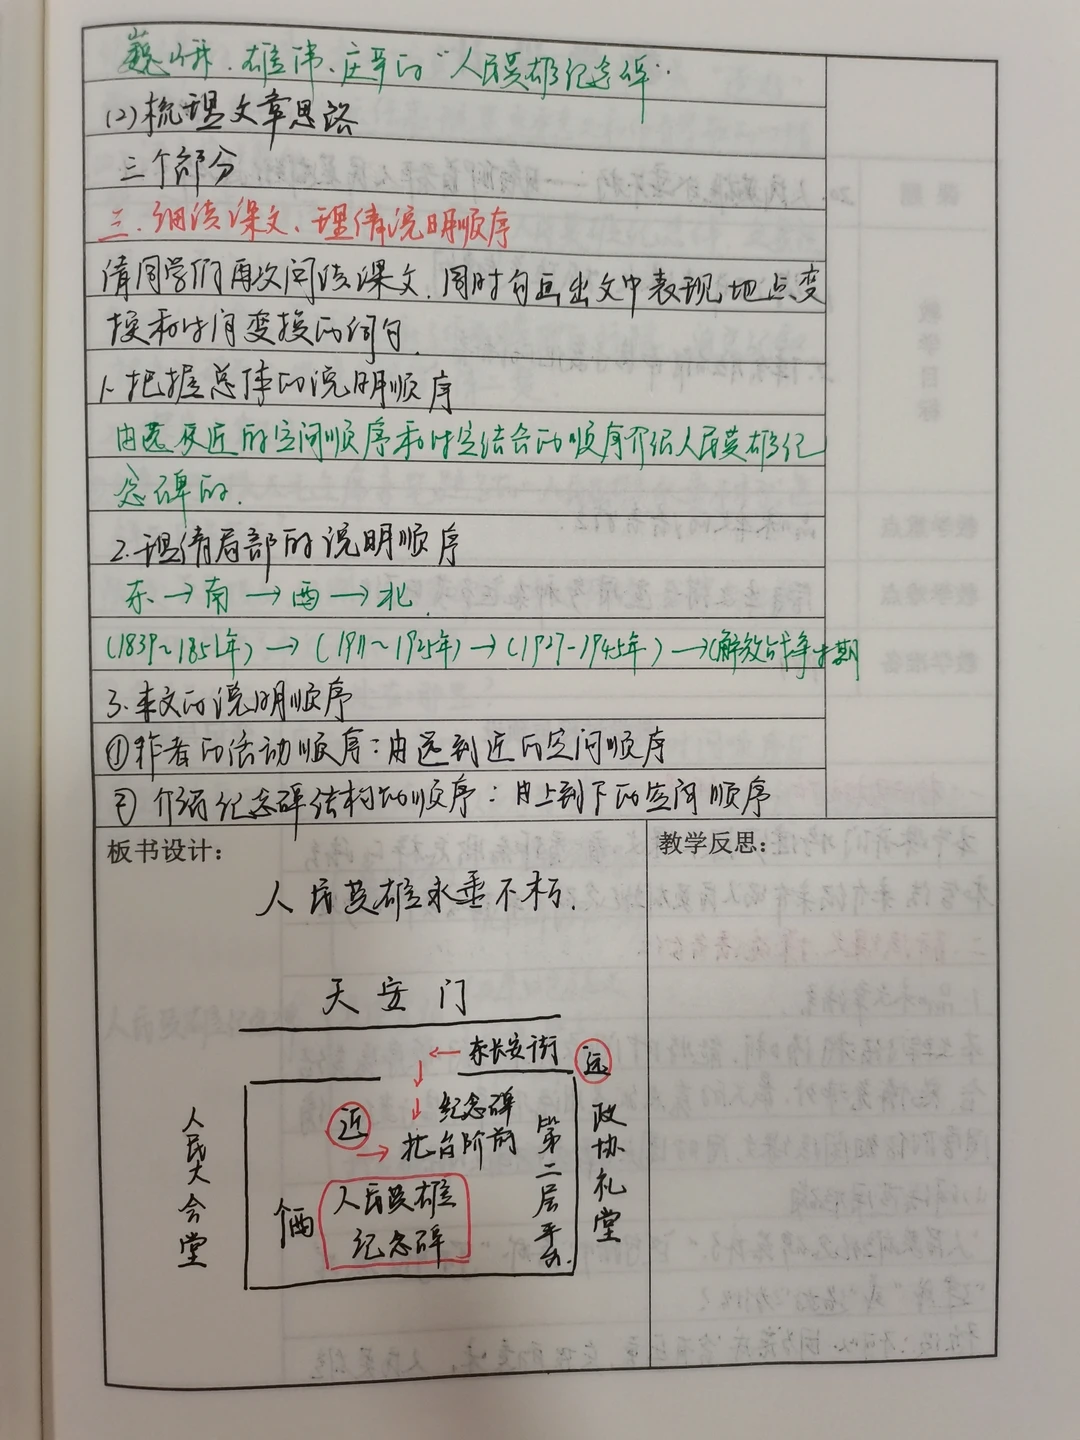 巍峨、雄伟、庄严的“人民英雄纪念碑”.
(2)梳理文章思路
三个部分
三、细读课文、理清说明顺序
请同学们再次阅读课文,同时勾画出文中表现地点变
换和时间变换的词句.
1.把握总体的说明顺序
由远及近的空间顺序和时空结合的顺序介绍人民英雄纪
念碑的.
2.理清局部的说明顺序
东→南→西→北.
(1839~1851年)→(1911~1925年)→(1927-1945年)→(解放战争时期
3.本文的说明顺序
①作者的活动顺序:由远到近的空间顺序
② 介绍纪念碑结构的顺序:由上到下的空间顺序
板书设计:
人民英雄永垂不朽.
天安门
←东长安街
远
近
纪念碑
北台阶前
人民大会堂
西
人民英雄
纪念碑
第二层平台.
政协礼堂
教学反思: